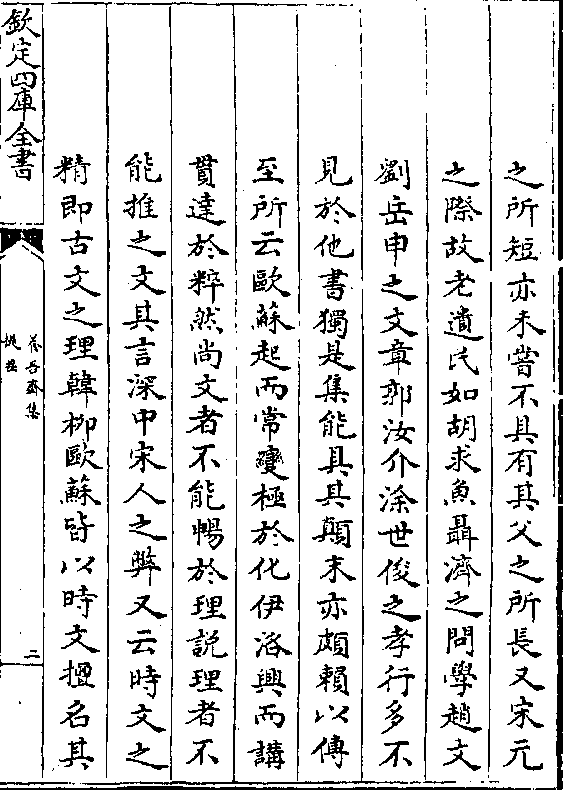 之所短亦未嘗不具有其父之所長又宋元
之際故老遺民如胡求魚聶濟之問學趙文
劉岳申之文章郭汝介涂世俊之孝行多不
見於他書獨是集能具其顛末亦頗賴以傳
至所云歐蘇起而常變極於化伊洛興而講
貫達於粹然尚文者不能暢於理説理者不
能推之文其言深中宋人之弊又云時文之
精即古文之理韓柳歐蘇皆以時文擅名其
欽定四庫全書
養吾齋集
提要
二